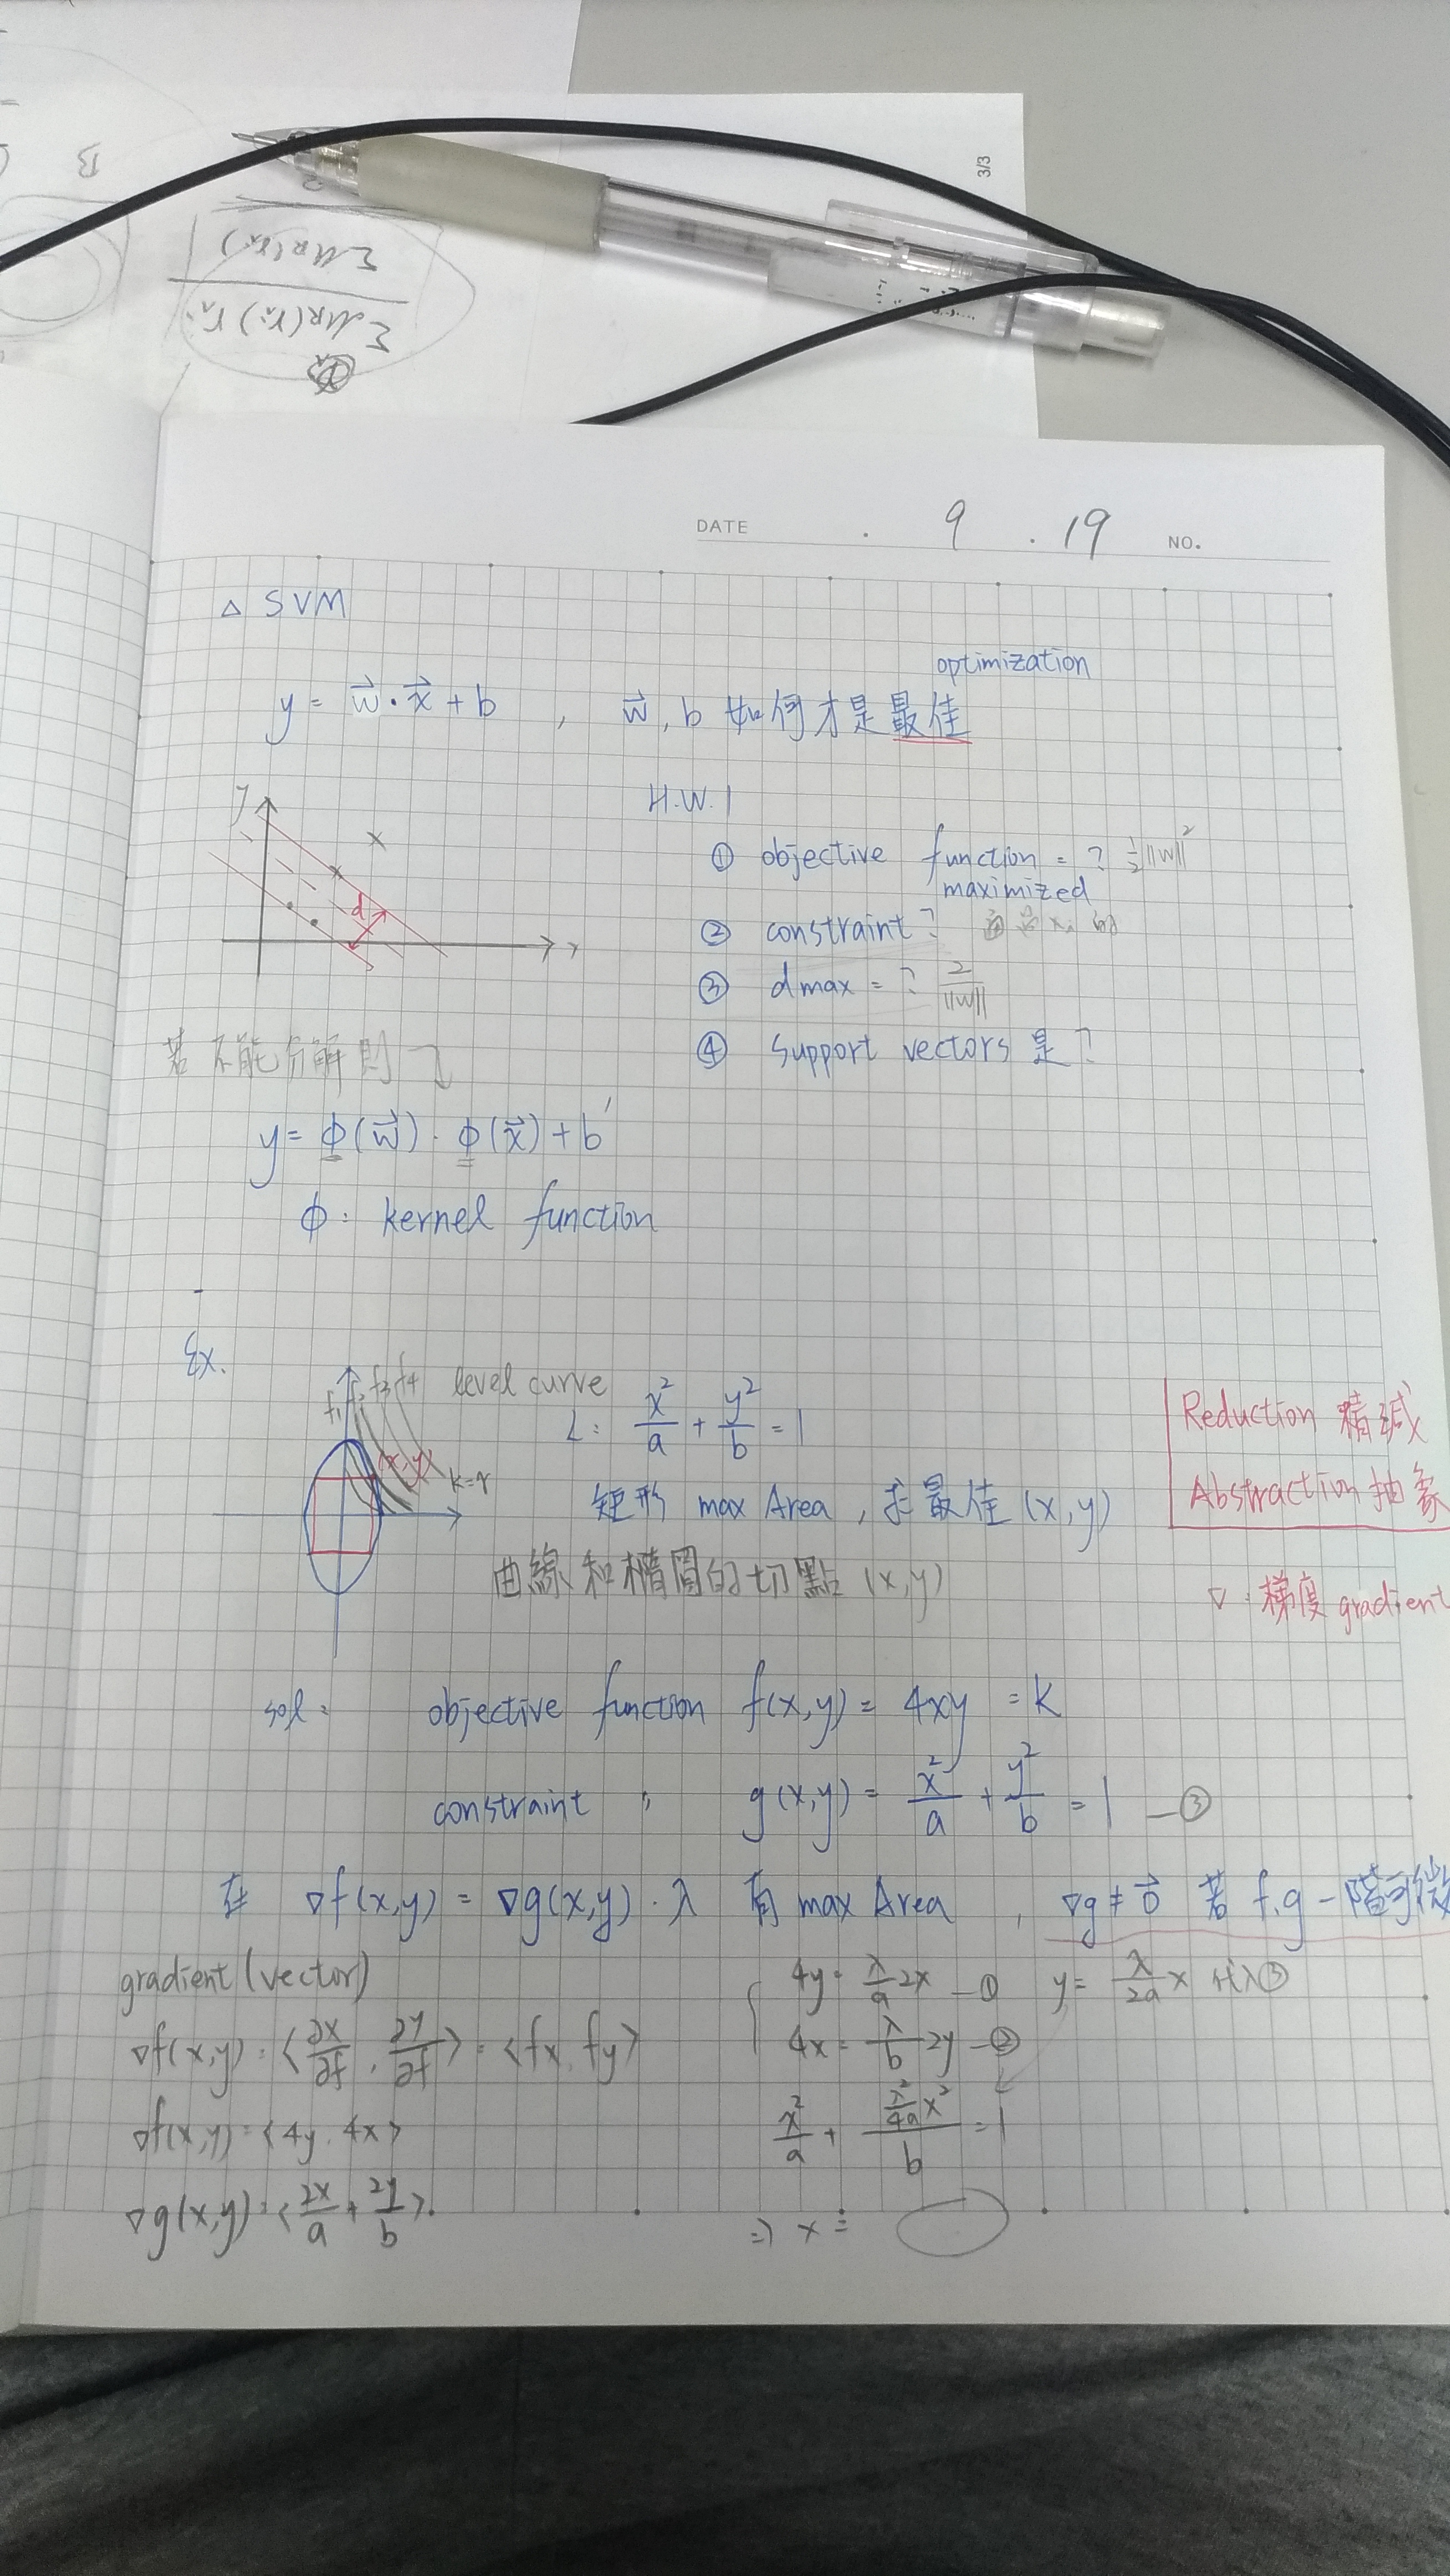 B
Σ MR(rx)
Σ MR(ri) ri
3/3
DATE . 9 . 19 NO.
△ SVM
optimization
y = w⃗·x⃗ + b , w⃗, b 如何才是最佳
y
x
d
H.W.1
① objective function = ? ½||W||²
maximized
② constraint?
③ dmax = ? 2/||W||
④ support vectors 是?
若不能分解則
y = ϕ(w⃗)·ϕ(x⃗) + b′
ϕ: kernel function
Ex.
f1 f2 f3 f4 level curve
(x,y)
L: x²/a + y²/b = 1
矩形 max Area, 求最佳 (x,y)
曲線和橢圓的切點 (x,y)
Reduction 精減
Abstraction 抽象
▽: 梯度 gradient
sol: objective function f(x,y) = 4xy = k
constraint , g(x,y) = x²/a + y²/b = 1 —③
在 ▽f(x,y) = ▽g(x,y)·λ 有 max Area , ▽g ≠ 0⃗ 若 f.g 一階可微
gradient (vector)
▽f(x,y) = <∂x/∂f , ∂y/∂f> = <fx, fy>
▽f(x,y) = <4y, 4x>
▽g(x,y) = <2x/a + 2y/b>
4y = λ/a 2x —① y = λ/2a x 代入③
4x = λ/b 2y —②
x²/a + (λ²/4a x²)/b = 1
=> x =